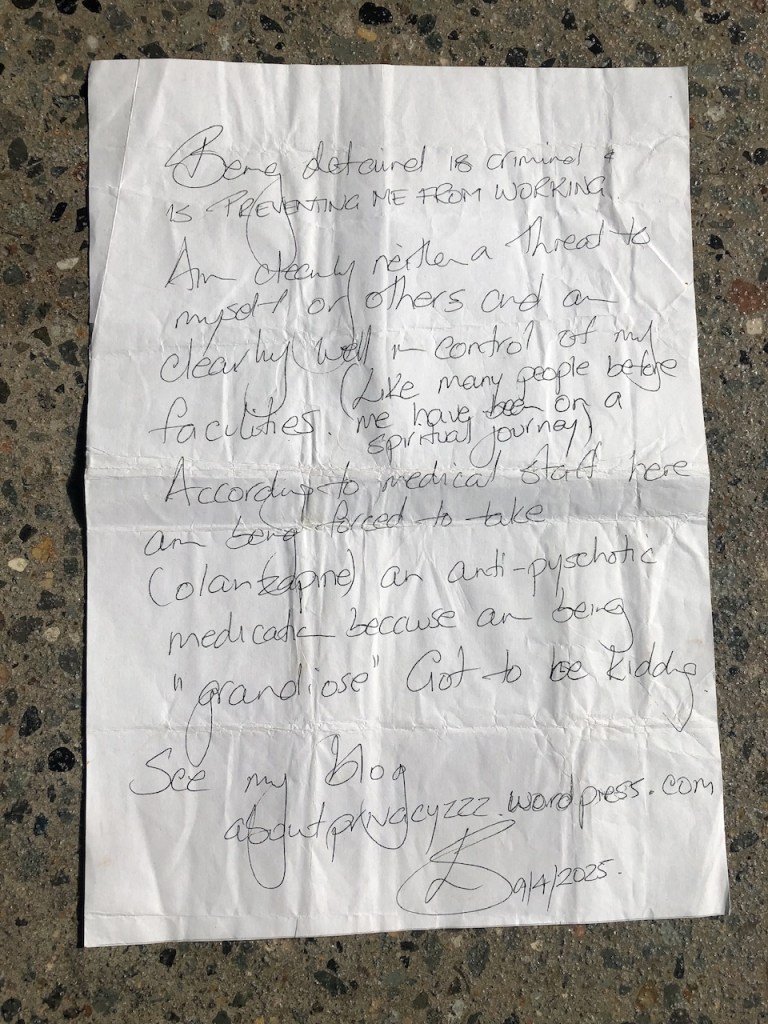 Being detained is criminal &
is PREVENTING ME FROM WORKING.
Am clearly neither a threat to
myself or others and am
clearly well in control of my
faculities. (Like many people before
me have been on a
spiritual journey)
According to medical staff here
am being forced to take
(olanzapine) an anti-pyschotic
medication because am being
"grandiose" Got to be kidding.
See my blog
aboutprivacyzzz.wordpress.com
9/4/2025.